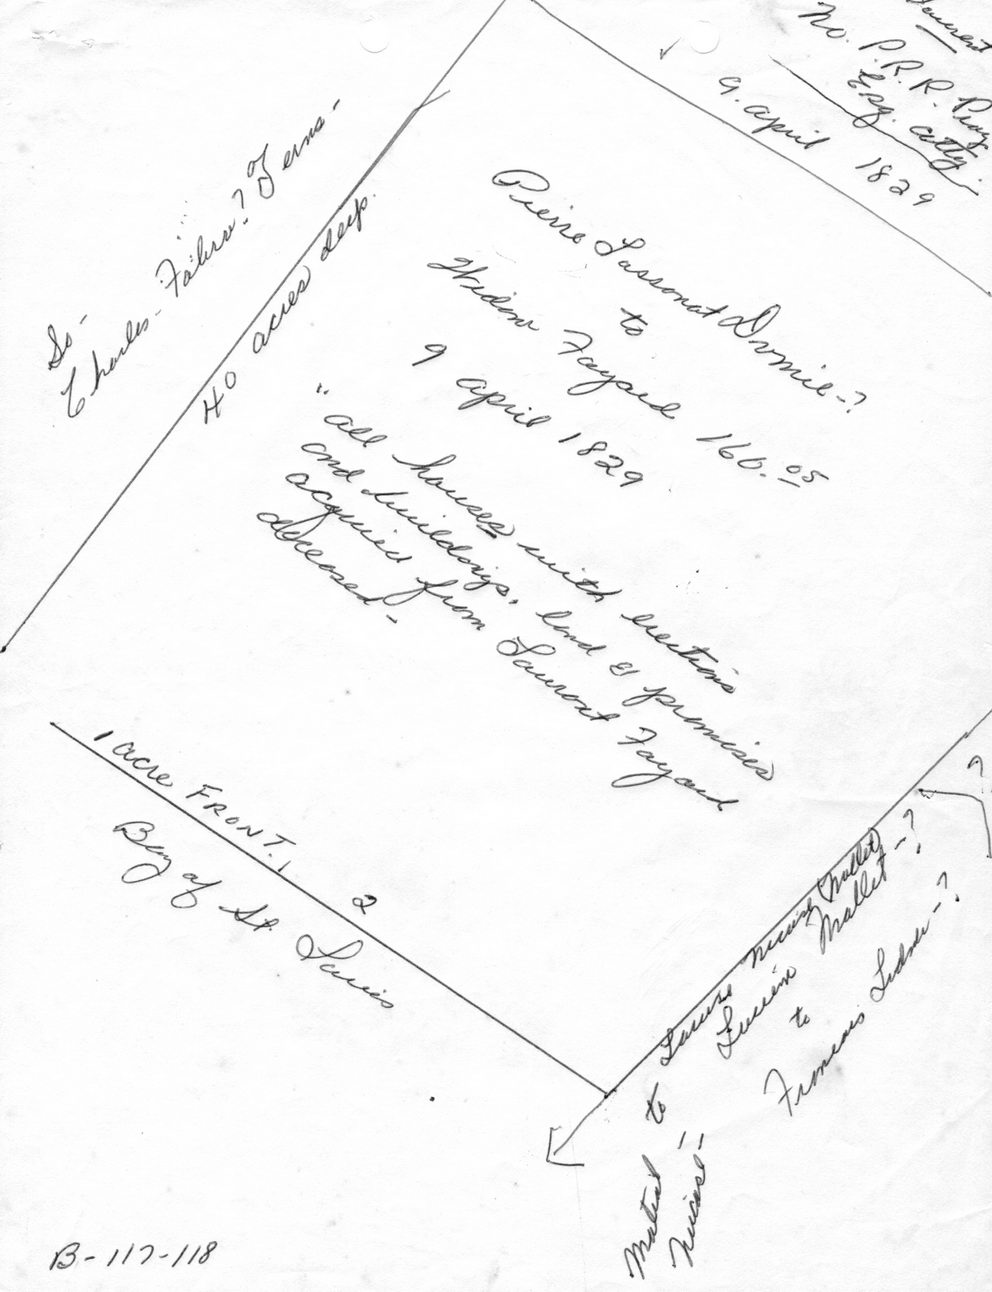 No. P.R.R. Pray
Esq. atty.
9. april 1829
So-
Charles - Fabre? Ferns-
40 acres deep.
Pierre Lassonat Dromie-?
to
Widow Fayard 166.05
9 april 1829
"all houses with erections
and buildings, land & premises
acquired from Laurent Fayard
deceased-
1 acre FRONT.
2
Bay of St. Louis
to Louise Nicaise (Mallet)
Lucien Mallet-?
to
Francois Ladner-?
?
Nicaise-
B-117-118